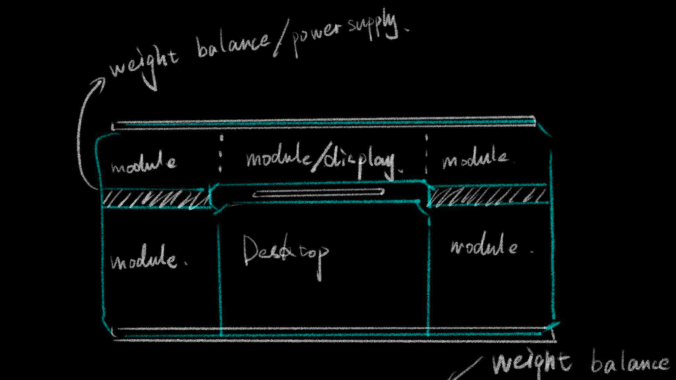 weight balance/power supply.
module module/display. module.
module. Desktop module.
weight balance